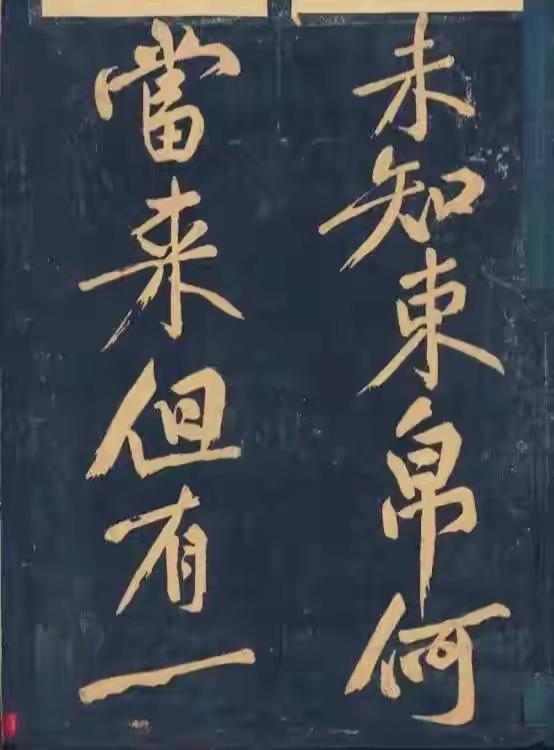 未知束帛何
當来但有一